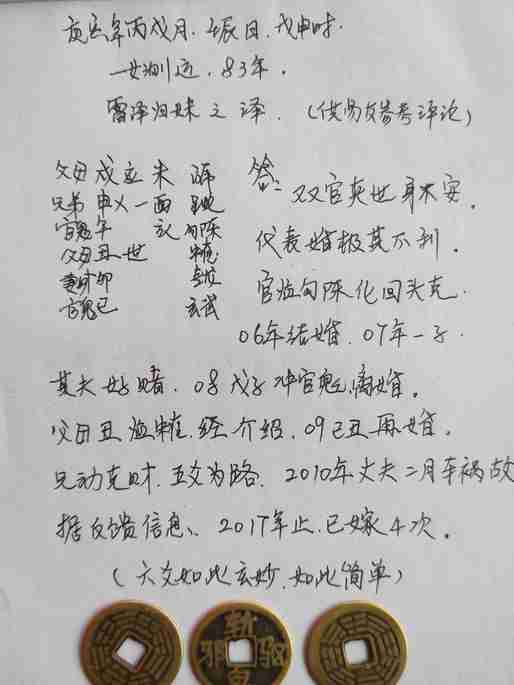 庚寅年丙戌月.壬辰日.戊申时.
一女测运.83年.
雷泽归妹之泽.(供易友参考评论)
父母戌应未
兄弟申乂一酉
官鬼午 勾陈
父母丑世 朱雀
妻财卯 青龙
官鬼巳 玄武
答:双官夹世身不安.
代表婚极其不利.
官临勾陈化回头克.
06年结婚.07年一子.
其夫好赌.08戊子冲官鬼离婚.
父母丑临朱雀.经介绍.09己丑再婚.
兄动克财.五爻为路.2010年丈夫二月车祸故
据反馈信息、2017年止.已嫁4次.
(六爻如此玄妙.如此简单)